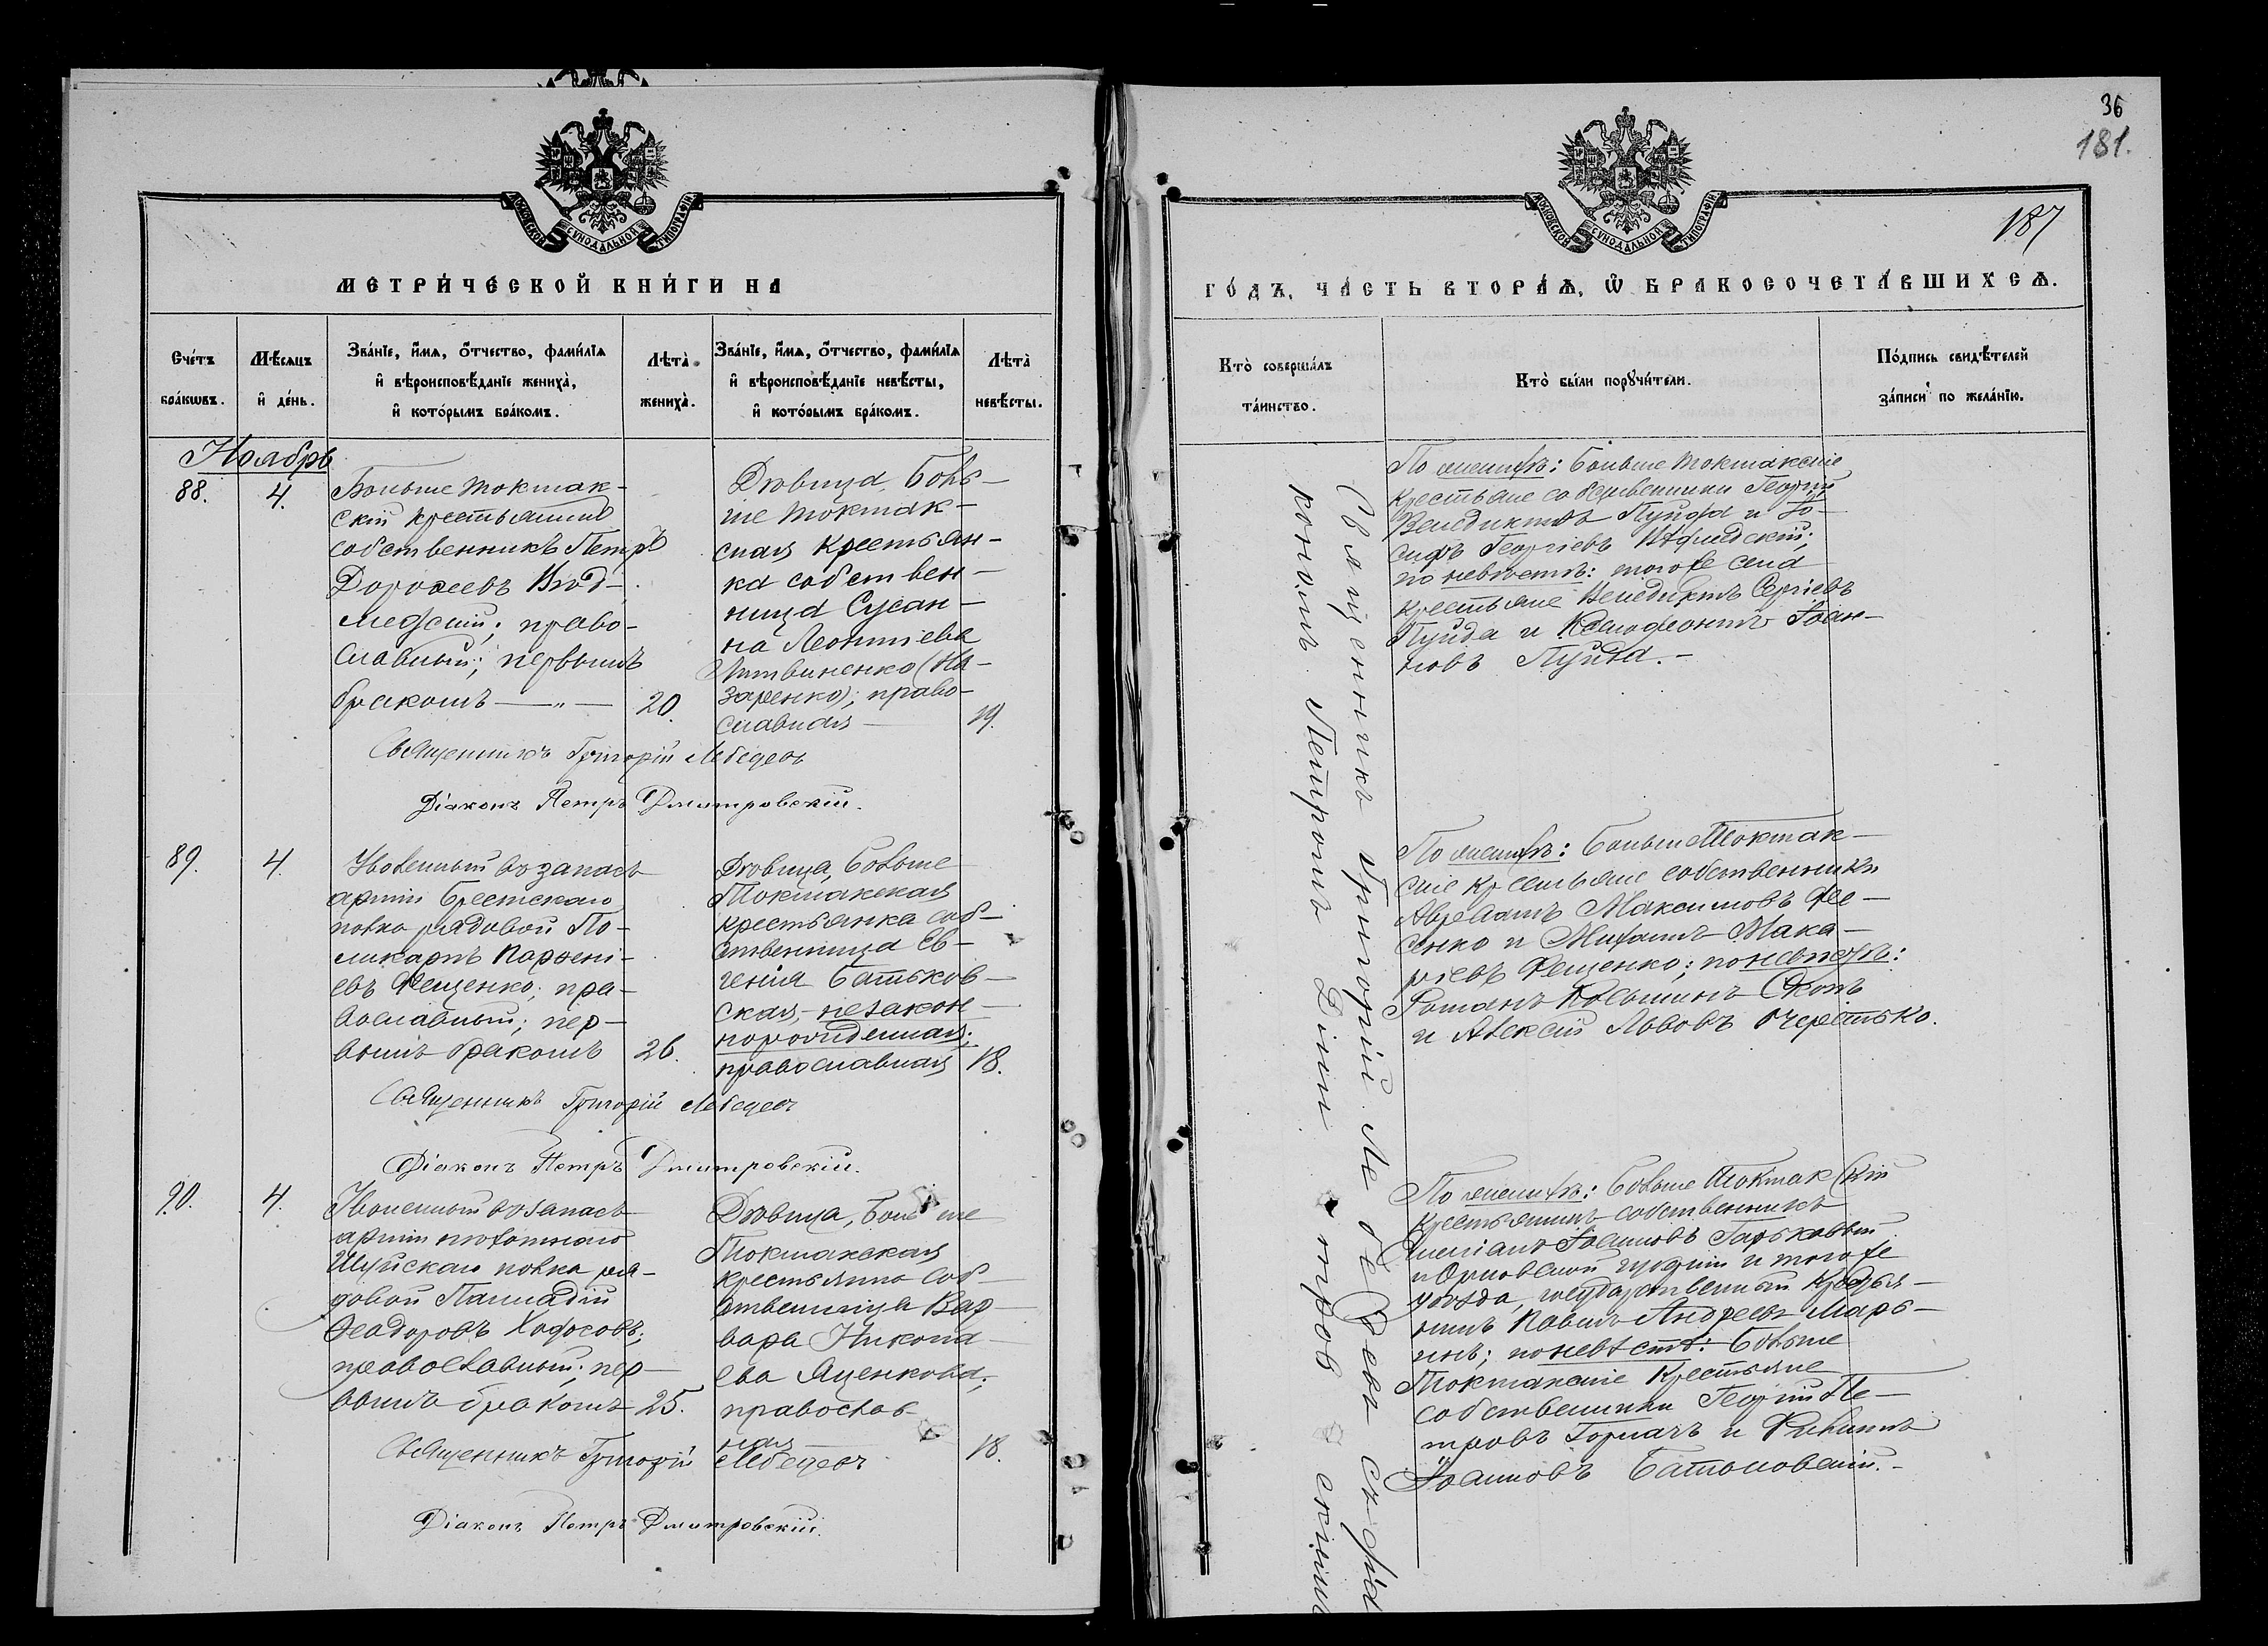 36
181.
187
МОСКОВСКОЙ СѴНОДАЛЬНОЙ ТИПОГРАФІИ
МЕТРИ́ЧЕСКОЙ КНИ́ГИ НА
Сче́тъ бра́кωвъ.
Мѣ́сяцъ и҆ де́нь.
Зва́нїе, и҆́мѧ, ѻ҆́тчество, фами́лїѧ
и҆ вѣроисповѣ́данїе жениха̀,
и҆ кото́рымъ бра́комъ.
Лѣ́та̀ жениха̀.
Зва́нїе, и҆́мѧ, ѻ҆́тчество, фами́лїѧ
и҆ вѣроисповѣ́данїе невѣ́сты,
и҆ кото́рымъ бра́комъ.
Лѣ́та̀ невѣ́сты.
Ноябрь
88.
4.
Больше Токмак-
скій крестьянинъ
собственникъ Петръ
Дороѳеевъ
право-
славный; первымъ
бракомъ — „ —
20.
Дѣвица, Боль-
ше Токмак-
ская крестьян-
ка собствен-
ница Сусан-
на Леонтіева
Литвиненко (На-
заренко); право-
славная —
19.
Священникъ Григорій Лебедевъ
Діаконъ Петръ Дмитровскій.
89.
4.
Уволенный въ запасъ
арміи Брестскаго
полка рядовой По-
ликарпъ Парѳені-
евъ Фещенко; пра-
вославный; пер-
вымъ бракомъ
26.
Дѣвица, Больше
Токмакская
крестьянка соб-
ственница Ев-
генія Батьков-
ская, незакон-
норожденная;
православная
18.
Священникъ Григорій Лебедевъ
Діаконъ Петръ Дмитровскій.
90.
4.
Уволенный въ запасъ
арміи пѣхотнаго
Шуйскаго полка ря-
довой Палладій
Ѳеодоровъ
православный; пер-
вымъ бракомъ
25.
Дѣвица, Больше
Токмакская
крестьянка соб-
ственница Вар-
вара Никола-
ева Яценкова;
православ-
ная
18.
Священникъ Григорій Лебедевъ
Діаконъ Петръ Дмитровскій.
ГО́ДЪ, ЧА́СТЬ ВТОРА́Ѧ, Ѡ҆ БРАКОСОЧЕТА́ВШИХСѦ.
Кто̀ соверша́лъ та́инство.
Кто̀ бы́ли порꙋчи́тели.
По́дпись свидѣ́телей
за́писи по жела́нїю.
Священникъ Григорій Лебедевъ съ діа-
кономъ Петромъ Дмитровскимъ
По женихѣ: Больше Токмакскіе
крестьяне собственники Георгій
Венедиктовъ Пуйда и Іо-
сифъ Георгіевъ
по невѣстѣ: того же села
крестьяне Венедиктъ Сергіевъ
Пуйда и Ксенофонтъ Іоан-
новъ Пуйда. —
По женихѣ: Больше Токмак-
скіе крестьяне собственники
Авраамъ Максимовъ Фе-
сенко и Михаилъ Мака-
ріевъ Фещенко; по невѣстѣ:
Романъ Косьминъ
и Алексій Львовъ Очеретько.
По женихѣ: Больше Токмакскій
крестьянинъ собственникъ
Іоанновъ Гарькавый
и Орловской губерніи и того же
уѣзда, государственный крестья-
нинъ Павелъ Андреевъ Марь-
инъ; по невѣстѣ: Больше
Токмакскіе крестьяне
собственники Георгій Пе-
тровъ Горпачъ и Филиппъ
Іоанновъ